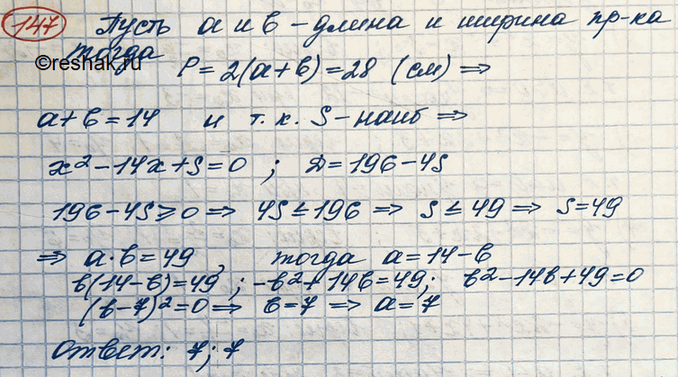 147 Пусть a и b - длина и ширина пр-ка
тогда
©reshak.ru
P = 2(a+b) = 28 (см) ⇒
a+b=14 и т.к. S-наиб ⇒
x²-14x+S=0 ; D=196-4S
196-4S≥0 ⇒ 4S≤196 ⇒ S≤49 ⇒ S=49
⇒ a·b=49, тогда a=14-b
b(14-b)=49 ; -b²+14b=49; b²-14b+49=0
(b-7)²=0 ⇒ b=7 ⇒ a=7
Ответ: 7; 7